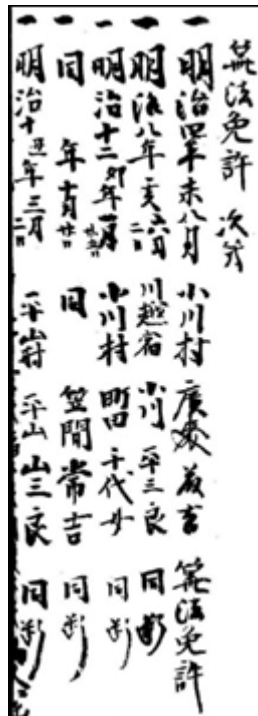 箆法免許 次第
一 明治四年未八月 小川村 廣 吉 箆法免許
一 明治八年亥六月 二日 川越宿 小川 平三良 同断
一 明治十二卯年一月 小川村 町田 千代女 同断
一 同 年十月廿日 同 笠間常吉 同断
一 明治十 年三月 二日 平山村 平山 山三良 同断